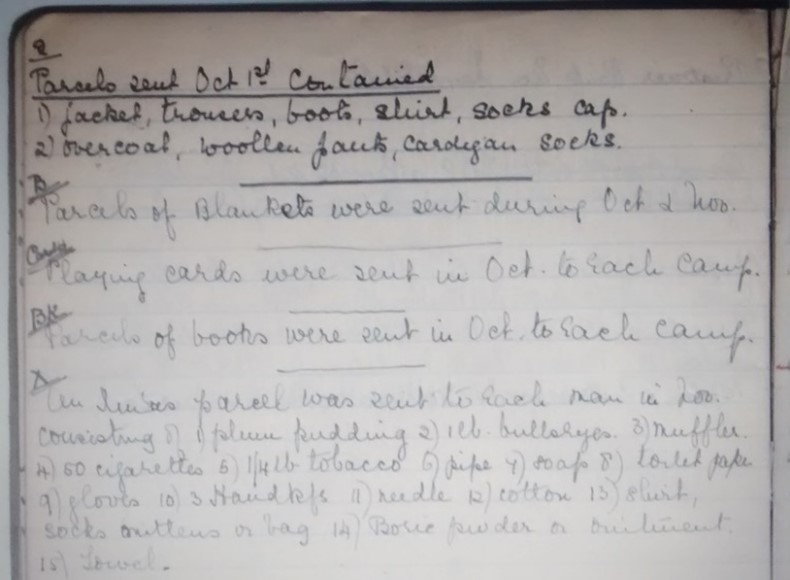 2
Parcels sent Oct 1st Contained
1) jacket, trousers, boots, shirt, socks cap.
2) overcoat, woollen pants, cardigan socks.
B
Parcels of Blankets were sent during Oct & Nov.
Cards
Playing cards were sent in Oct. to Each Camp.
BK
Parcels of books were sent in Oct. to Each camp.
X
An Xmas parcel was sent to Each man in Nov.
consisting of 1) plum pudding 2) 1 lb. bullseyes. 3) muffler.
4) 50 cigarettes 5) 1/4 lb tobacco 6) pipe 7) soap 8) toilet paper
9) gloves 10) 3 Handkfs 11) needle 12) cotton 13) shirt,
socks mittens or bag 14) Boric powder or ointment.
15) Towel.